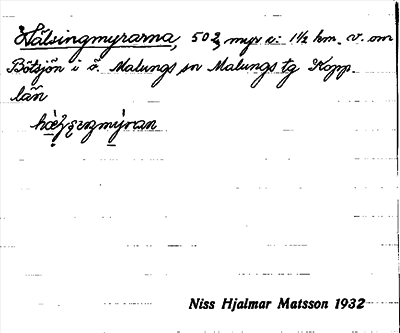 Hälsingmyrarna, 502 myr i: 1½ km. v. om
Bötsjön i ö. Malungs sn Malungs tg Kopp.
län
Niss Hjalmar Matsson 1932